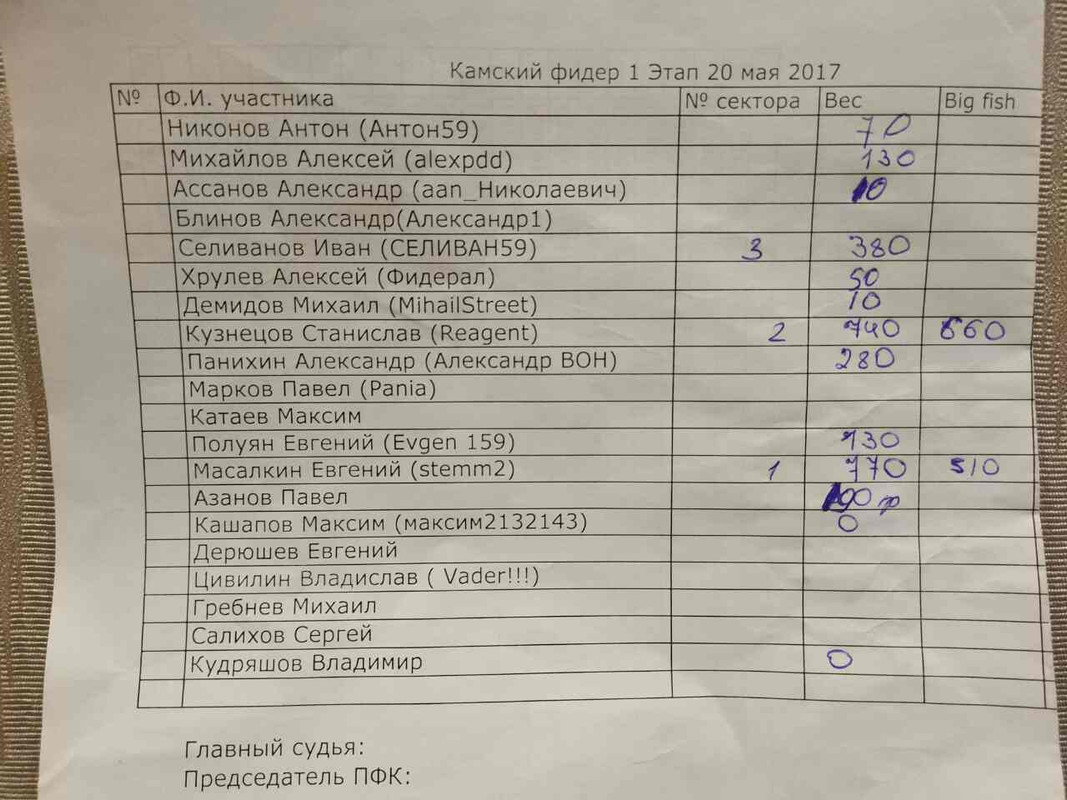 Камский фидер 1 Этап 20 мая 2017
№ Ф.И. участника № сектора Вес Big fish
Никонов Антон (Антон59) 70
Михайлов Алексей (alexpdd) 130
Ассанов Александр (aan_Николаевич) 10
Блинов Александр(Александр1)
Селиванов Иван (СЕЛИВАН59) 3 380
Хрулев Алексей (Фидерал) 50
Демидов Михаил (MihailStreet) 10
Кузнецов Станислав (Reagent) 2 740 660
Панихин Александр (Александр ВОН) 280
Марков Павел (Pania)
Катаев Максим
Полуян Евгений (Evgen 159) 130
Масалкин Евгений (stemm2) 1 770 510
Азанов Павел 190 гр
Кашапов Максим (максим2132143) 0
Дерюшев Евгений
Цивилин Владислав ( Vader!!!)
Гребнев Михаил
Салихов Сергей
Кудряшов Владимир 0
Главный судья:
Председатель ПФК: